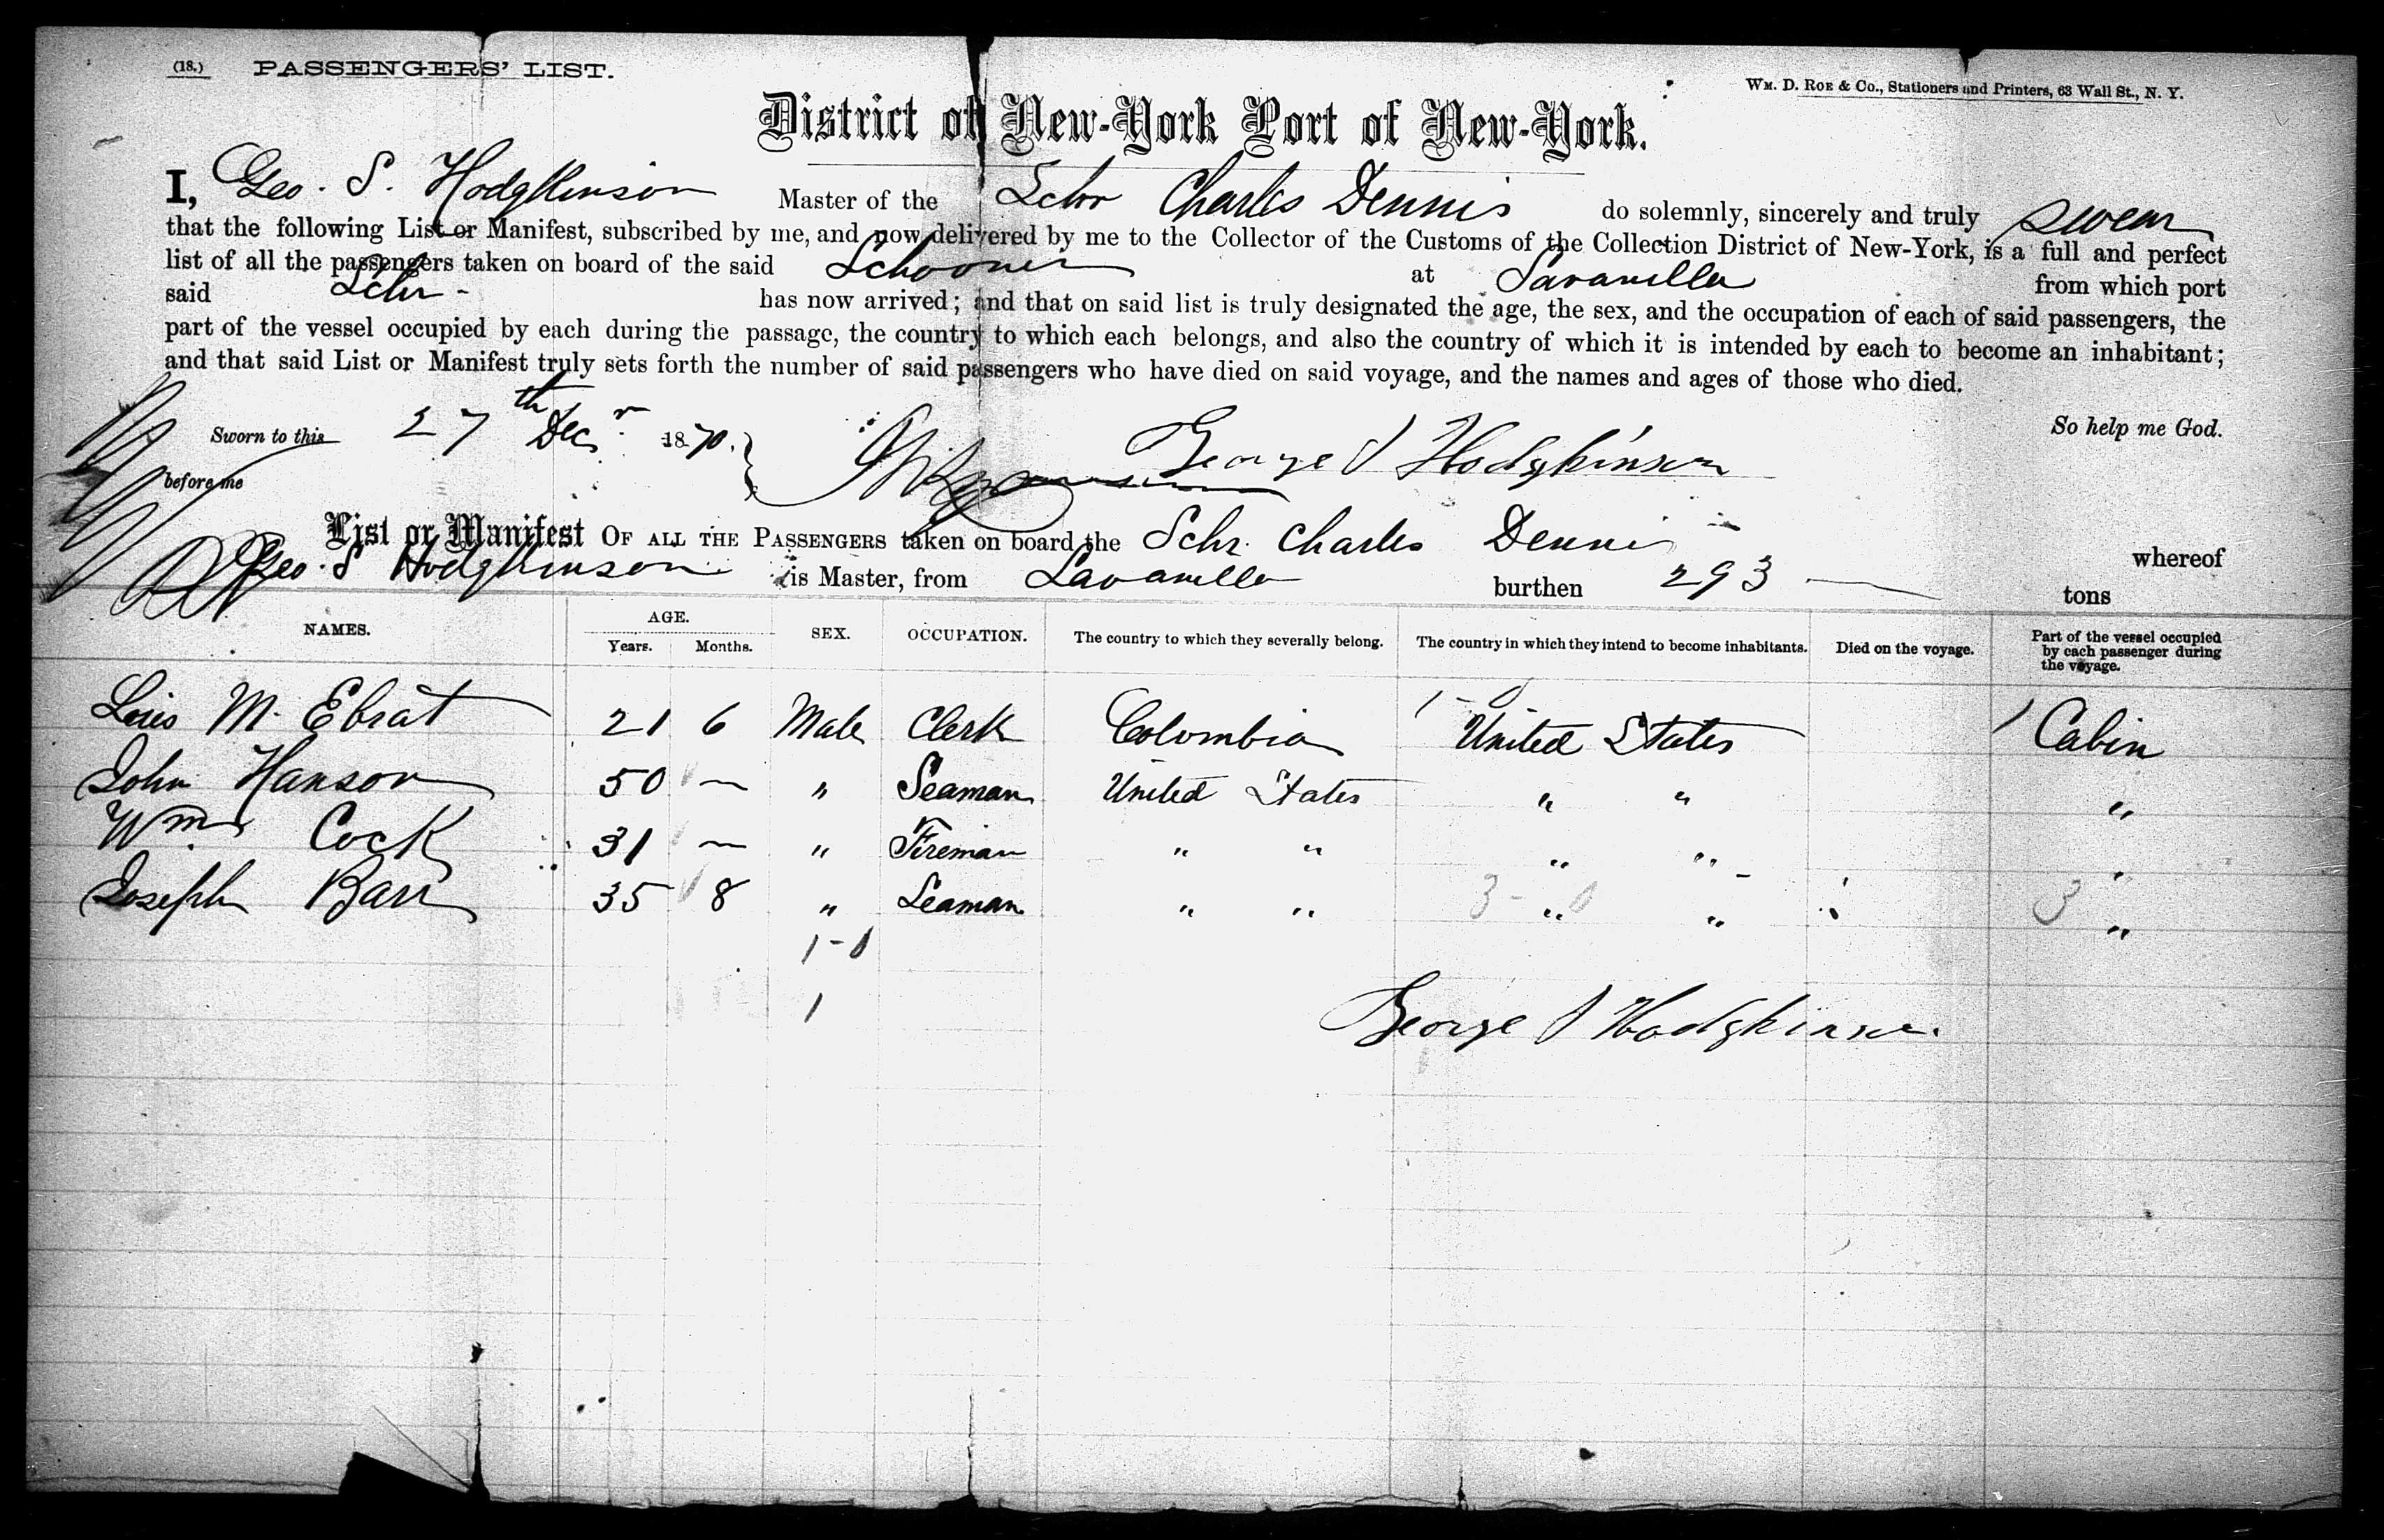 (18.) PASSENGERS' LIST.
Wm. D. Roe & Co., Stationers and Printers, 63 Wall St., N. Y.
District of New-York Port of New-York.
I, Geo. S. Hodgkinson Master of the Schr Charles Dennis do solemnly, sincerely and truly swear
that the following List or Manifest, subscribed by me, and now delivered by me to the Collector of the Customs of the Collection District of New-York, is a full and perfect
list of all the passengers taken on board of the said Schooner at Savanilla from which port
said Schr - has now arrived; and that on said list is truly designated the age, the sex, and the occupation of each of said passengers, the
part of the vessel occupied by each during the passage, the country to which each belongs, and also the country of which it is intended by each to become an inhabitant;
and that said List or Manifest truly sets forth the number of said passengers who have died on said voyage, and the names and ages of those who died.
So help me God.
Sworn to this 27th Decr. 1870. George S Hodgkinson
before me
List or Manifest OF ALL THE PASSENGERS taken on board the Schr. Charles Dennis whereof
Geo. S Hodgkinson is Master, from Savanilla burthen 293 tons
NAMES. AGE. Years. Months. SEX. OCCUPATION. The country to which they severally belong. The country in which they intend to become inhabitants. Died on the voyage. Part of the vessel occupied by each passenger during the voyage.
1 - 0
Louis M. Ebrat 21 6 Male Clerk Colombia United States 1 Cabin
John Hanson 50 — " Seaman United States " " "
Wm. Cock 31 — " Fireman " " " " "
Joseph Barr 35 8 " Seaman " " 3 - 0 " " 3 "
1-0
1
George S Hodgkinson